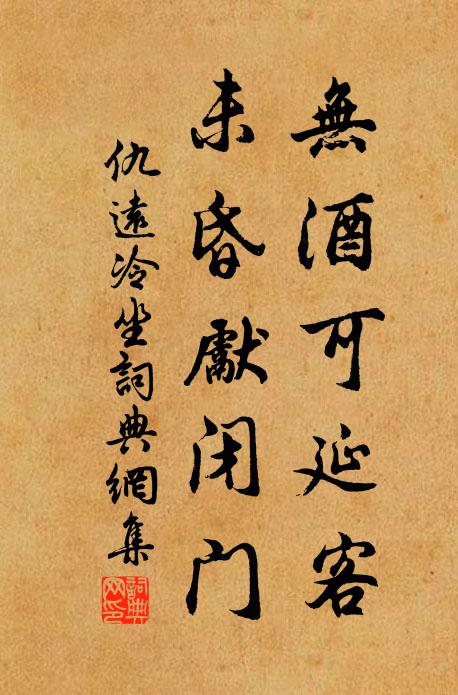 無酒可延客
未昏獻閉門
仇遠冷坐詞典網集
詞典
网印